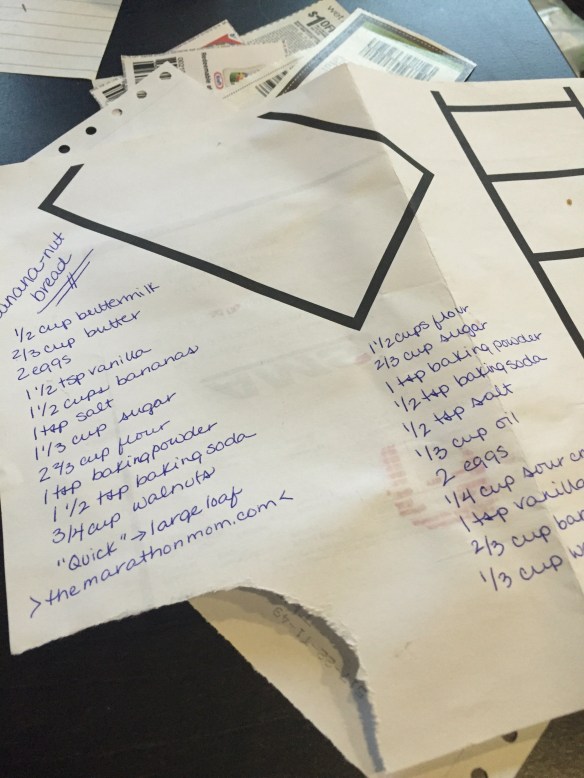 bread
1/2 cup buttermilk
2/3 cup butter
2 eggs
1 1/2 tsp vanilla
1 1/2 cups bananas
1 tsp salt
1 1/3 cup sugar
2 2/3 cup flour
1 tsp baking powder
1 1/2 tsp baking soda
3/4 cup walnuts
"Quick" → large loaf
>themarathonmom.com<
1 1/2 cups flour
2/3 cup sugar
1 tsp baking powder
1/2 tsp baking soda
1/2 tsp salt
1/3 cup oil
2 eggs
1/4 cup sour
1 tsp vanilla
2/3 cup
1/3 cup
$1